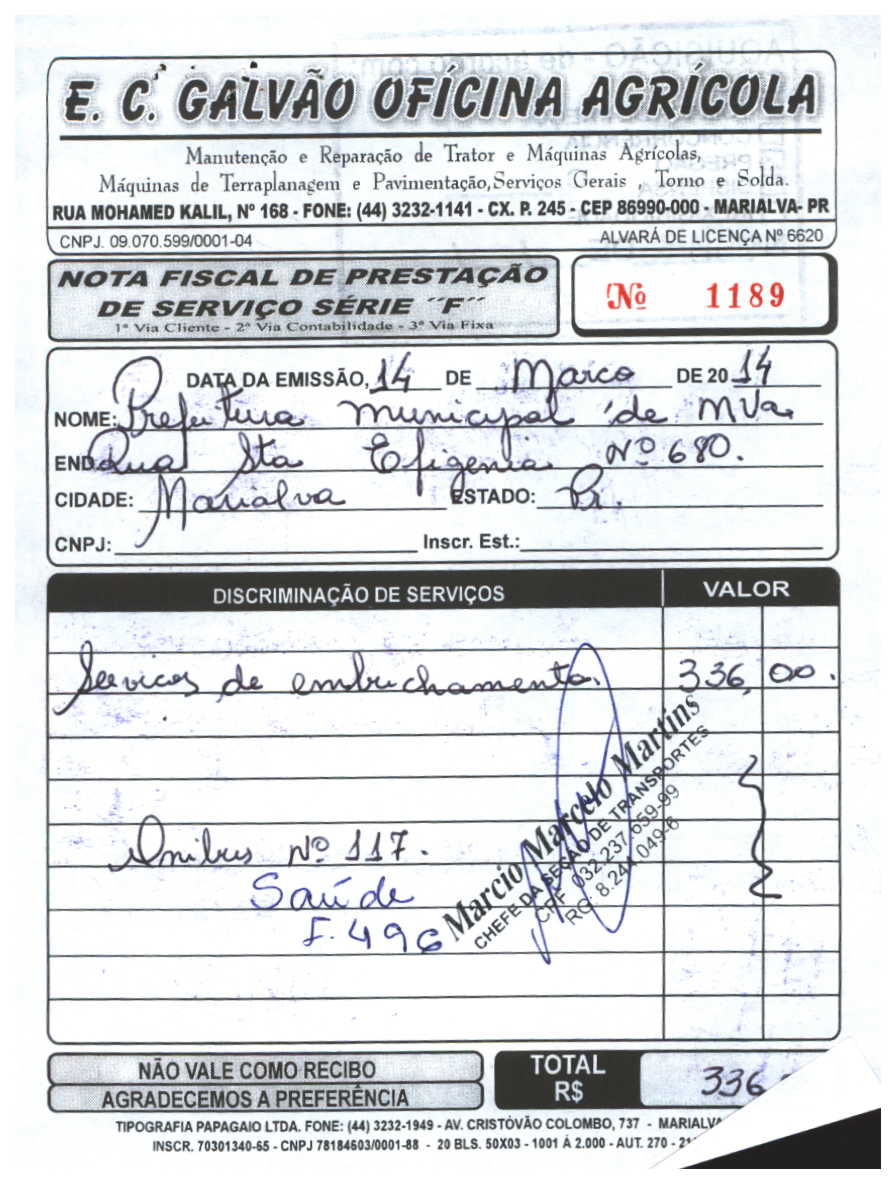 E. C. GALVÃO OFÍCINA AGRÍCOLA
Manutenção e Reparação de Trator e Máquinas Agrícolas,
Máquinas de Terraplanagem e Pavimentação, Serviços Gerais , Torno e Solda.
RUA MOHAMED KALIL, Nº 168 - FONE: (44) 3232-1141 - CX. P. 245 - CEP 86990-000 - MARIALVA- PR
CNPJ. 09.070.599/0001-04 ALVARÁ DE LICENÇA Nº 6620
NOTA FISCAL DE PRESTAÇÃO
DE SERVIÇO SÉRIE ˝F˝
Nº 1189
1ª Via Cliente - 2ª Via Contabilidade - 3ª Via Fixa
DATA DA EMISSÃO, 14 DE Março DE 20 14
NOME: Prefeitura municipal de MVa.
END. Rua Sta Efigenia Nº 680.
CIDADE: Marialva ESTADO: Pr.
CNPJ: Inscr. Est.:
DISCRIMINAÇÃO DE SERVIÇOS VALOR
Serviços de embuchamento. 336,00.
Marcio Marcelo Martins
CHEFE DA SEÇÃO DE TRANSPORTES
CPF 032.237.659-99
RG: 8.241.049-6
Onibus Nº 117.
Saúde
F. 496
NÃO VALE COMO RECIBO
AGRADECEMOS A PREFERÊNCIA
TOTAL
R$ 336
TIPOGRAFIA PAPAGAIO LTDA. FONE: (44) 3232-1949 - AV. CRISTÓVÃO COLOMBO, 737 - MARIALV
INSCR. 70301340-65 - CNPJ 78184603/0001-88 - 20 BLS. 50X03 - 1001 Á 2.000 - AUT. 270 -